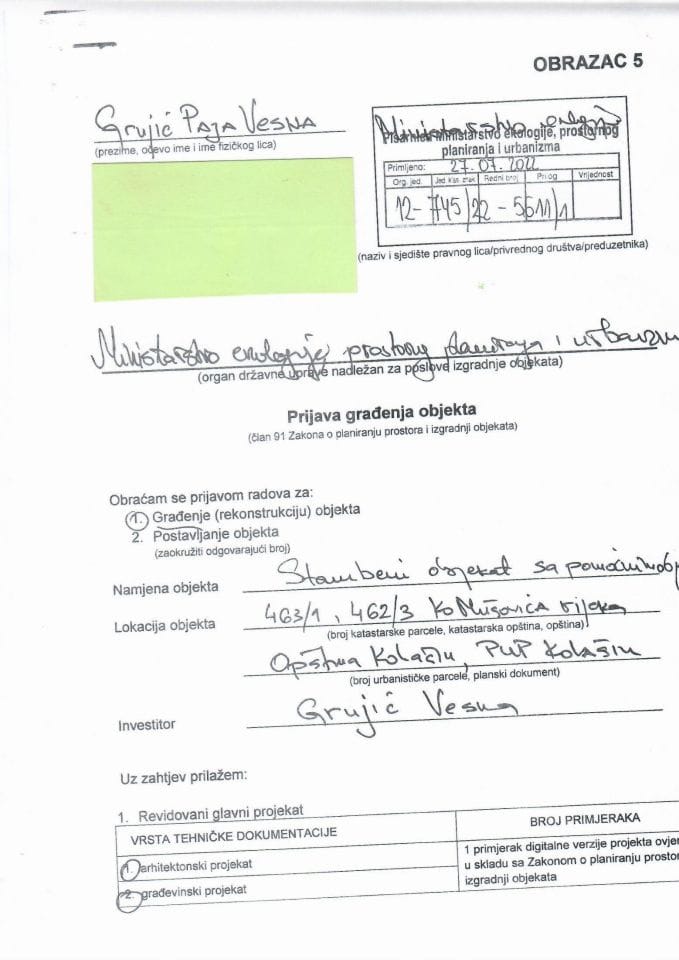 OBRAZAC 5
Grujić Paja Vesna
(prezime, očevo ime i ime fizičkog lica)
Ministarstvo ekologije
Pisarnica Ministarstvo ekologije, prostornog
planiranja i urbanizma
Primljeno: 27.07.2022
Org. jed. Jed. klas. znak Redni broj Prilog Vrijednost
12- 745/22-5611/1
(naziv i sjedište pravnog lica/privrednog društva/preduzetnika)
Ministarstvo ekologije prostornog planiranja i urbanizm
(organ državne uprave nadležan za poslove izgradnje objekata)
Prijava građenja objekta
(član 91 Zakona o planiranju prostora i izgradnji objekata)
Obraćam se prijavom radova za:
1. Građenje (rekonstrukciju) objekta
2. Postavljanje objekta
(zaokružiti odgovarajući broj)
Namjena objekta Stambeni objekat sa pomoćnim obj
Lokacija objekta 463/1, 462/3 KO Mušovića rijeka
(broj katastarske parcele, katastarska opština, opština)
Opština Kolašin, PUP Kolašin
(broj urbanističke parcele, planski dokument)
Investitor Grujić Vesna
Uz zahtjev prilažem:
1. Revidovani glavni projekat
VRSTA TEHNIČKE DOKUMENTACIJE BROJ PRIMJERAKA
1. arhitektonski projekat
2. građevinski projekat
1 primjerak digitalne verzije projekta ovjer
u skladu sa Zakonom o planiranju prostor
izgradnji objekata